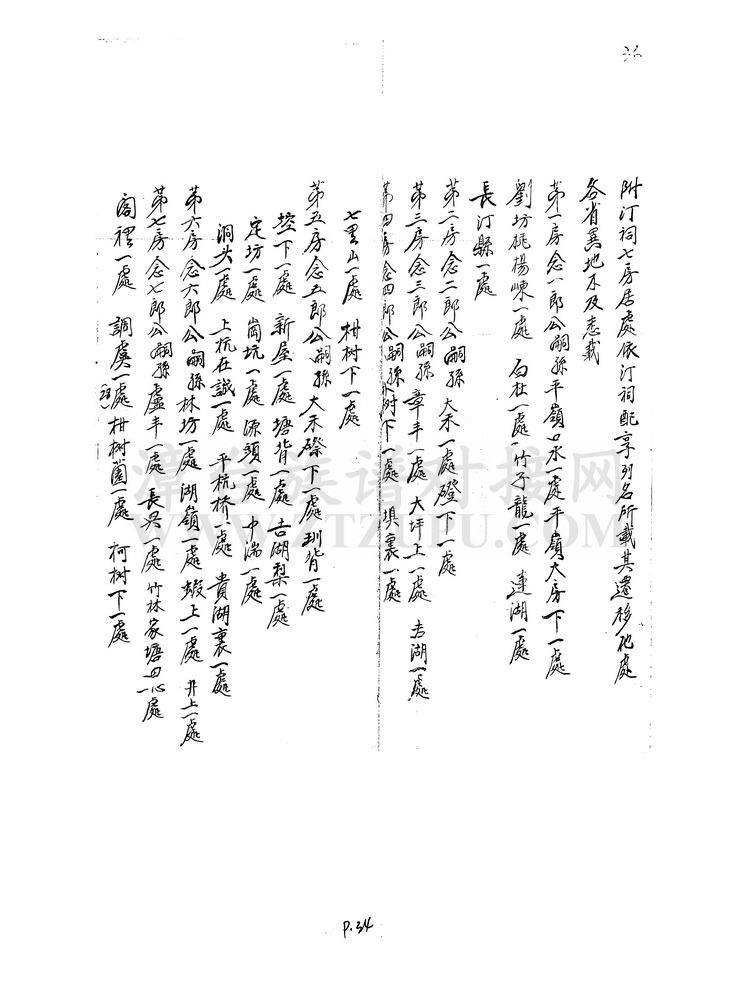 36
附汀祠七房居處依汀祠配享列名所載其遷移他處
各省異地不及志載
第一房念一郎公嗣孫平嶺水口一處平嶺大房下一處
劉坊桃楊崬一處 白杜一處 竹子龍一處 連湖一處
長汀縣一處
第二房念二郎公嗣孫 大禾一處 磴下一處
第三房念三郎公嗣孫 章丰一處 大坪上一處 吉湖一處
第四房念四郎公嗣孫 树下一處 垻裏一處
七里山一處 柑树下一處
第五房念五郎公嗣孫 大禾磜下一處 圳背一處
塆下一處 新屋一處 塘背一處 吉湖梨一處
定坊一處 崗坑一處 源頭一處 中湍一處
洞头一處 上杭在誠一處 平杭桥一處 貴湖裏一處
第六房念六郎公嗣孫 林坊一處 湖嶺一處 蝦上一處 井上一處
第七房念七郎公嗣孫 盧丰一處 長兴一處 竹林家塘田心一處
阁裡一處 調虞一處 柑樹崗一處 柯树下一處
P.34
漳台族谱对接网
WWW.ZTZUPU.COM